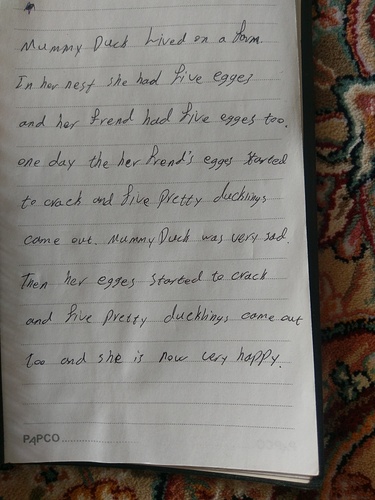 Mummy Duck Lived on a farm.
In her nest she had five egges
and her frend had five egges too.
one day the her frend's egges started
to crack and five pretty ducklings
came out. Mummy Duck was very sad.
Then her egges started to crack
and five pretty ducklings came out
too and she is now very happy.
PAPCO